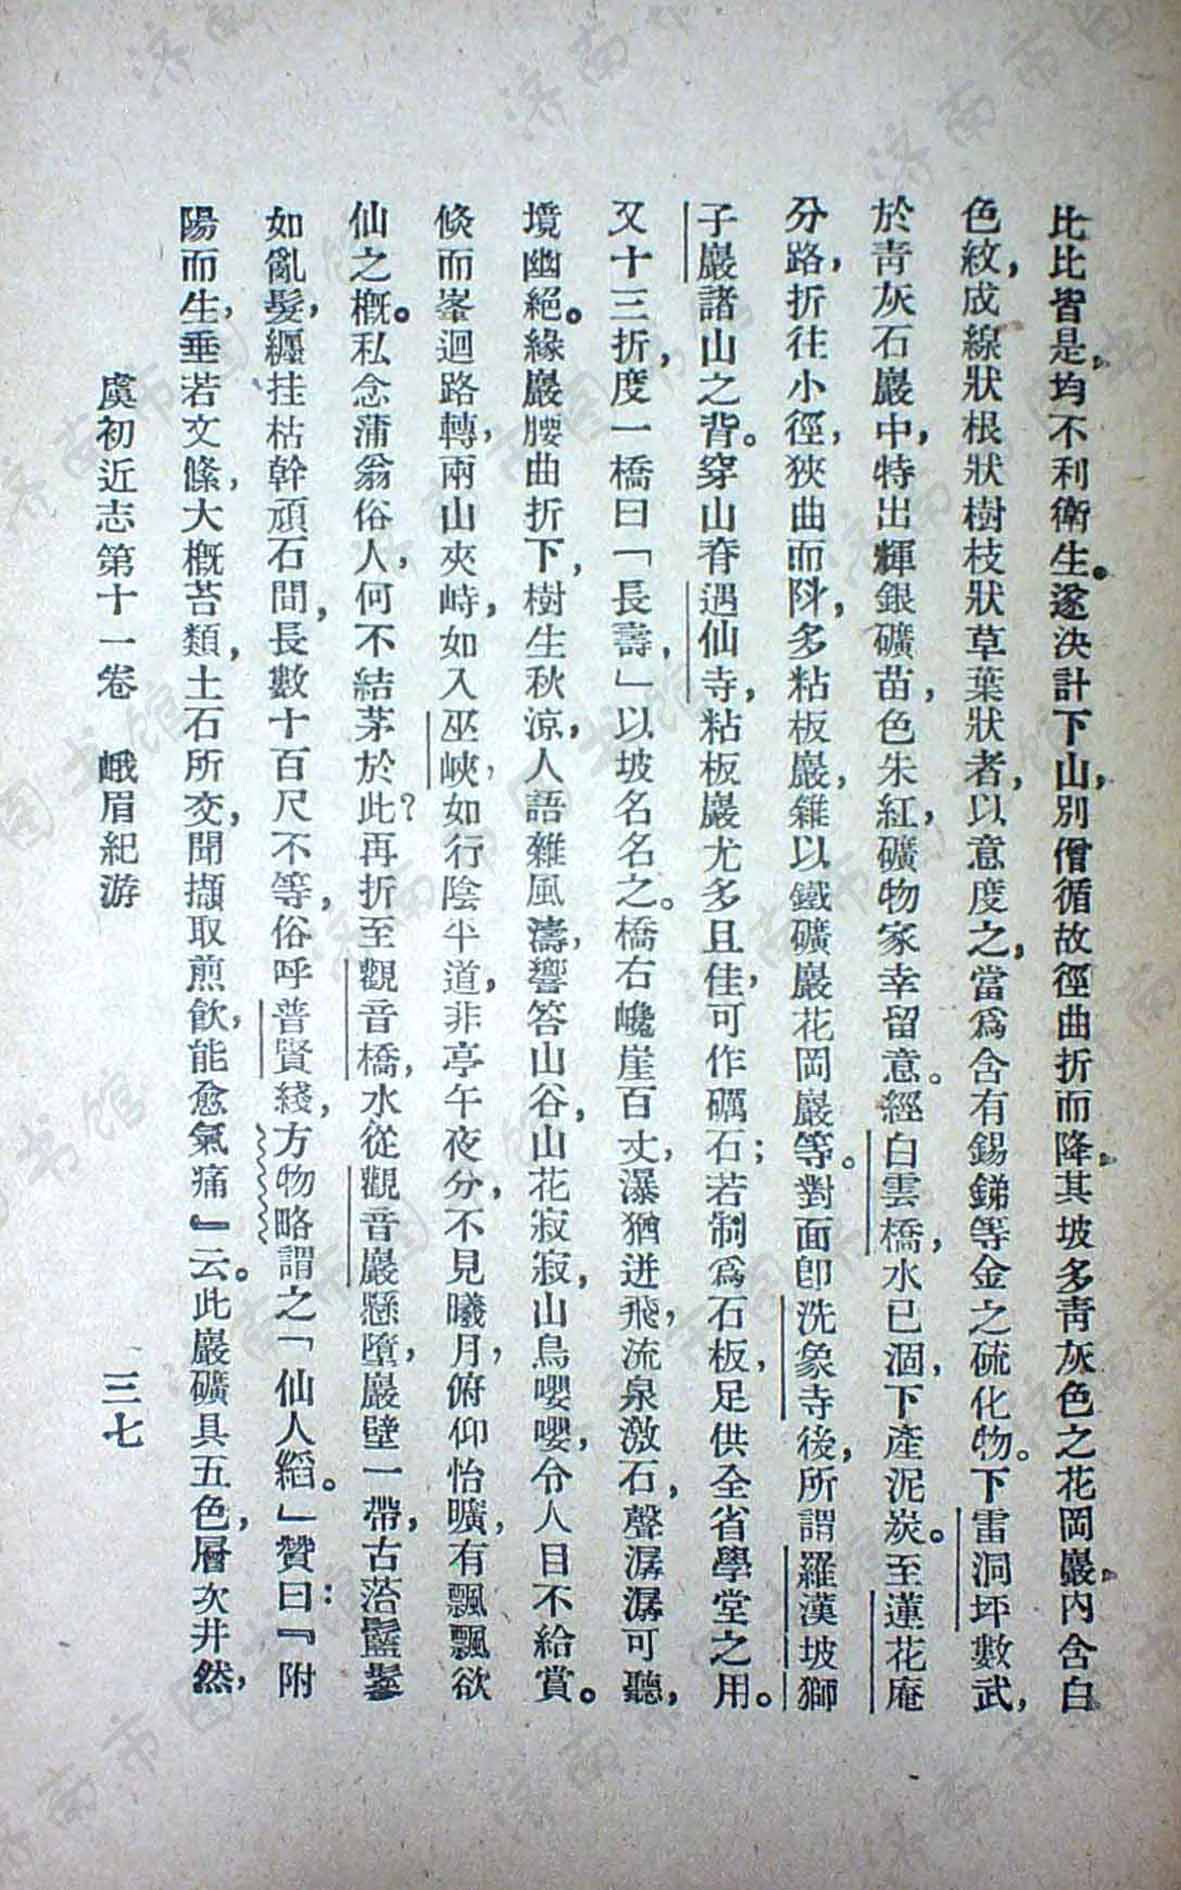 比比皆是，均不利衛生。遂決計下山，別僧循故徑曲折而降。其坡多靑灰色之花岡巖，內含白
色紋，成線狀根狀樹枝狀草葉狀者，以意度之，當爲含有錫銻等金之硫化物。下雷洞坪數武，
於靑灰石巖中，特出輝銀礦苗，色朱紅，礦物家幸留意。經白雲橋，水已涸，下產泥炭。至蓮花庵
分路，折往小徑，狹曲而陗，多粘板巖，雜以鐵礦巖花岡巖等。對面卽洗象寺後，所謂羅漢坡獅
子巖諸山之背。穿山脊遇仙寺，粘板巖尤多且佳，可作礪石；若制爲石板，足供全省學堂之用。
又十三折，度一橋曰「長壽，」以坡名名之。橋右巉崖百丈，瀑猶迸飛，流泉激石，聲潺潺可聽，
境幽絕。緣巖腰曲折下，樹生秋涼，人語雜風濤，響答山谷，山花寂寂，山鳥嚶嚶，令人日不給賞。
倏而峯迴路轉，兩山夾峙，如入巫峽，如行陰平道，非亭午夜分，不見曦月，俯仰怡曠，有飄飄欲
仙之槪。私念蒲翁俗人，何不結茅於此？再折至觀音橋，水從觀音巖懸墮，巖壁一帶，古苔鬖鬖
如亂髮，纏挂枯幹頑石間，長數十百尺不等，俗呼普賢綫，方物略謂之「仙人縚。」贊曰：『附
陽而生，垂若文絛，大概苔類，土石所交，聞擷取煎飲，能愈氣痛』云。此巖礦具五色，層次井然，
虞初近志第十一卷　峨眉紀游　三七
济南市图书馆